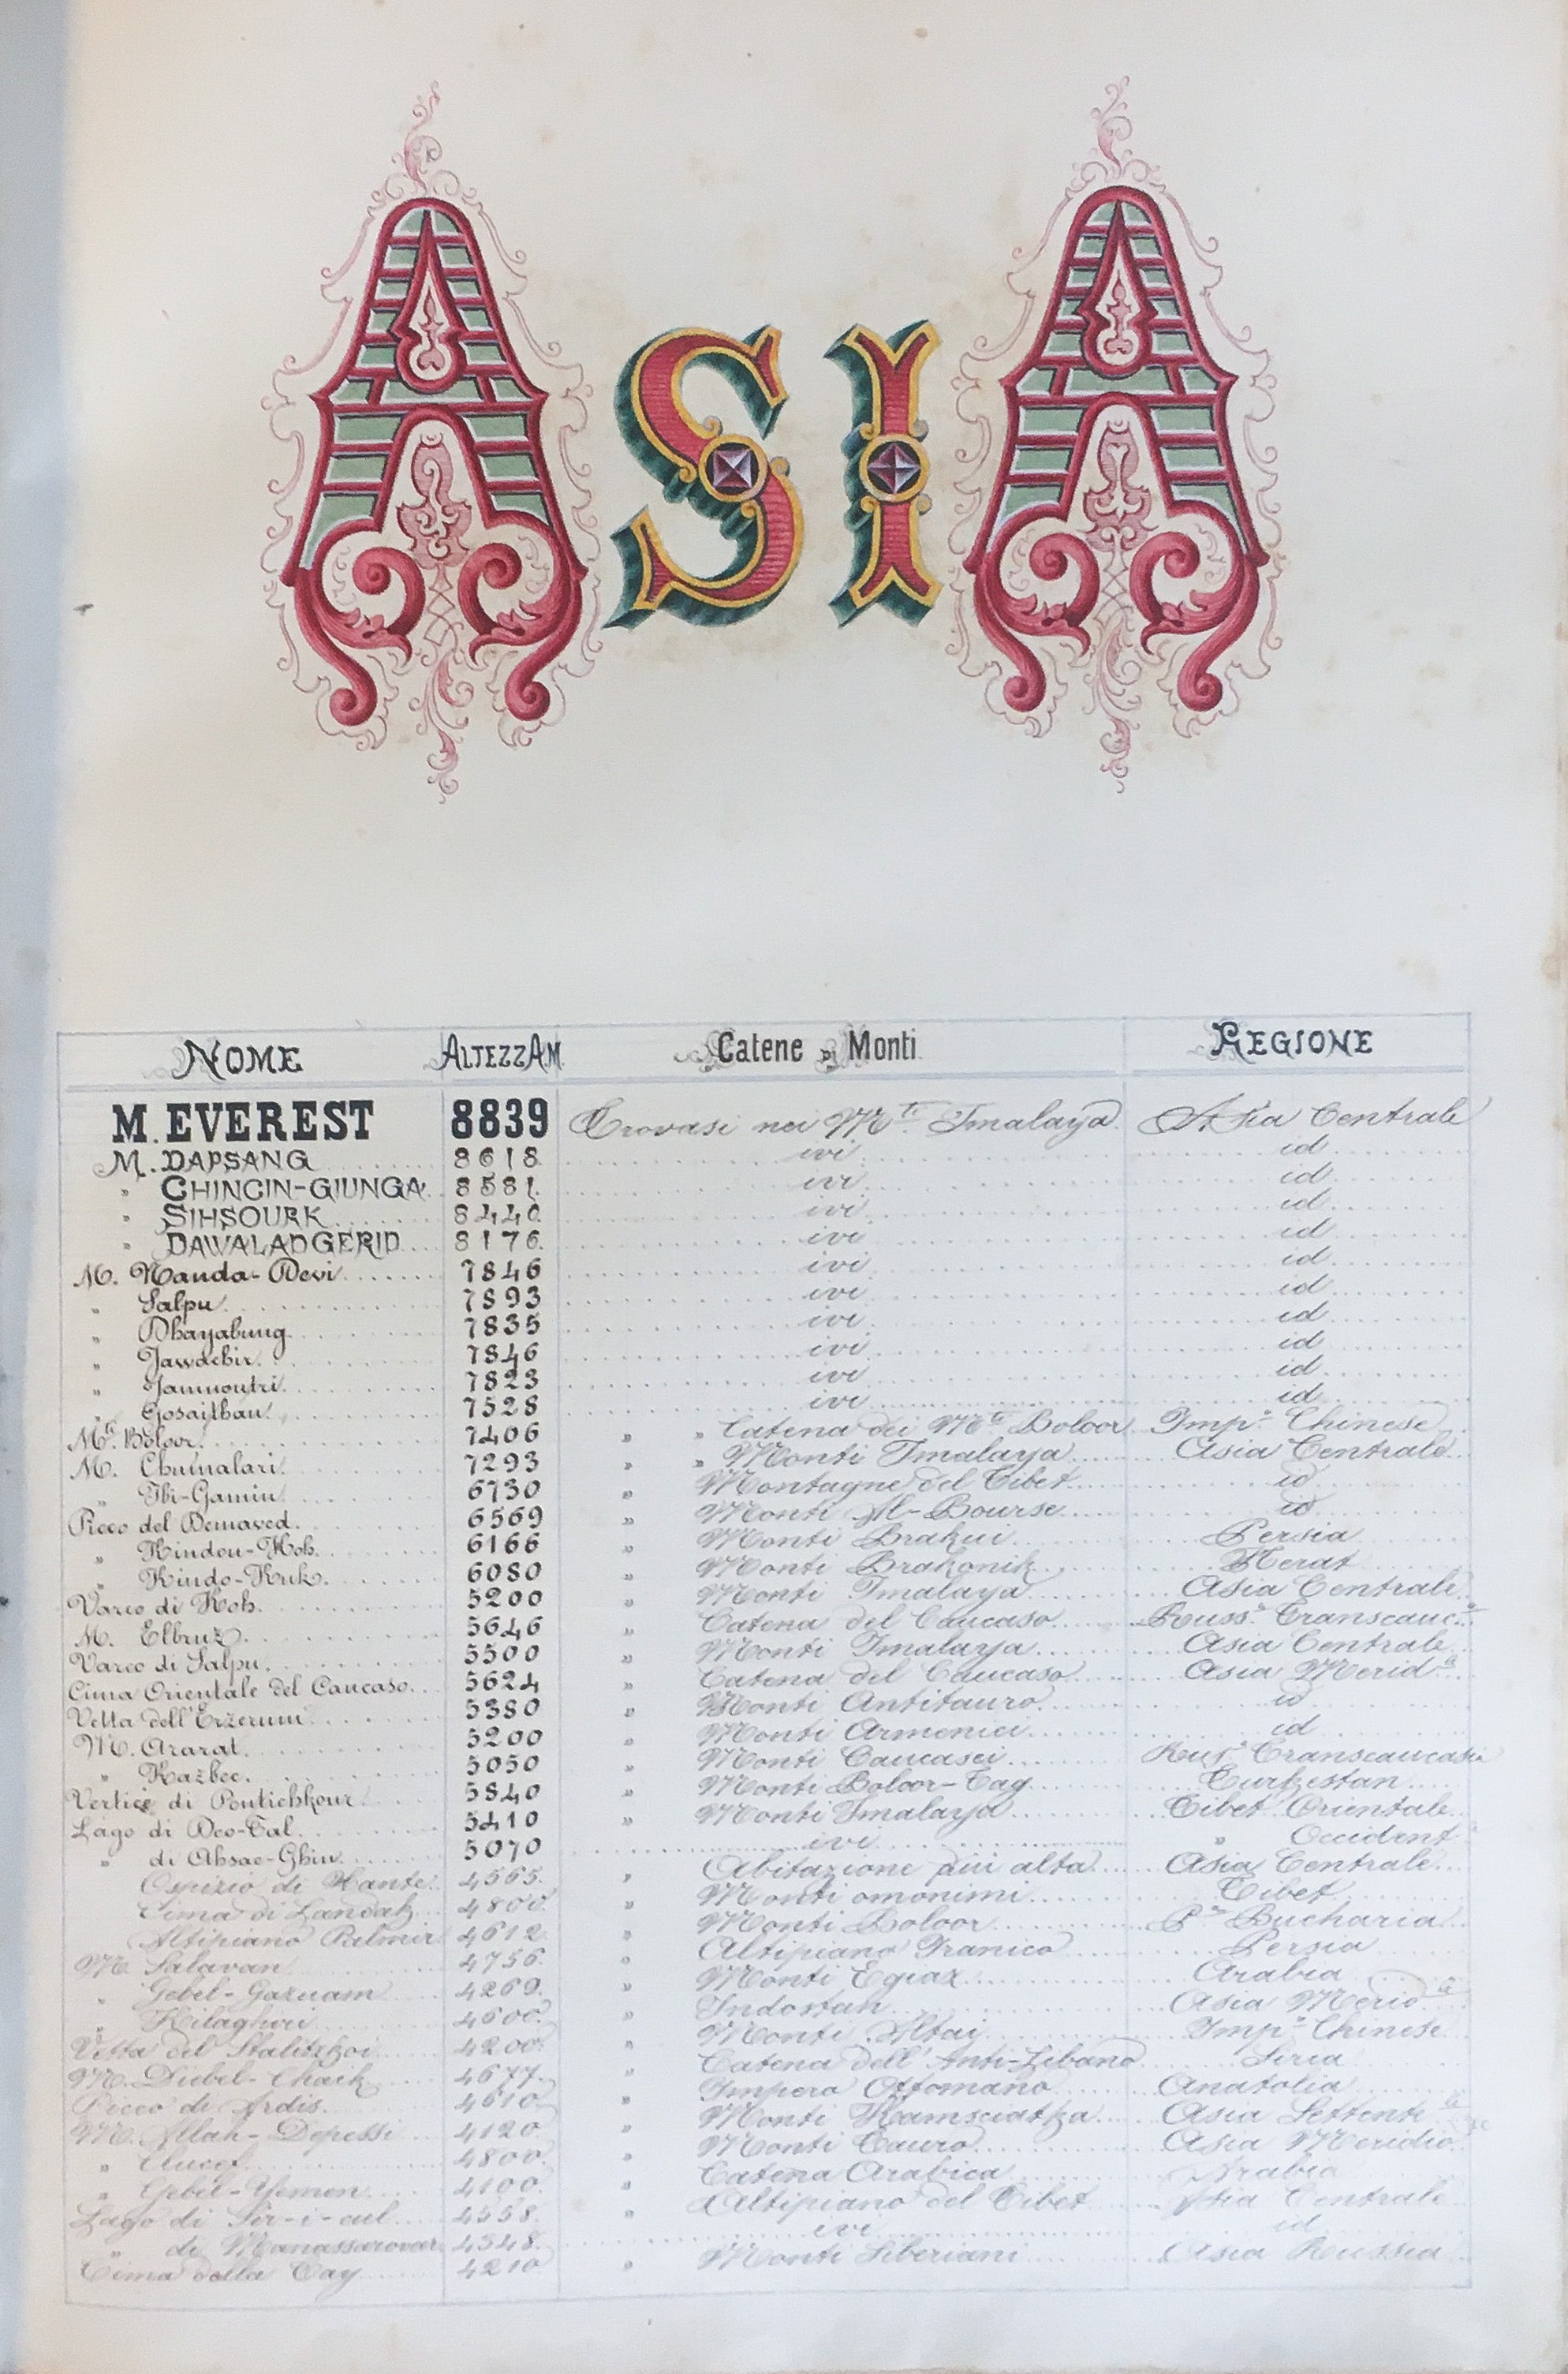 ASIA
NOME ALTEZZA M. Catene DI Monti REGIONE
M. EVEREST 8839 Trovasi nei Mti Imalaya Asia Centrale
M. DAPSANG 8618 ivi id
" CHINCIN-GIUNGA 8581 ivi id
" SIHSOURK 8440 ivi id
" DAWALADGERID 8176 ivi id
M. Nanda-Devi 7846 ivi id
" Salpu 7893 ivi id
" Dhayabung 7835 ivi id
" Jawdehir 7846 ivi id
" Jamnoutri 7823 ivi id
" Gosaithan 7528 ivi id
Mti Boloor 7406 " " Catena dei Mti Boloor Impo Chinese
M. Chumalari 7293 " " Monti Imalaya Asia Centrale
" Ibi-Gamin 6730 " Montagne del Tibet id
Picco del Demaved 6569 " Monti Al-Bourse id
" Hindou-Koh 6166 " Monti Brahui Persia
" Hindo-Kuk 6080 " Monti Brahonik Herat
Varco di Koh 5200 " Monti Imalaya Asia Centrale
M. Elbruz 5646 " Catena del Caucaso Russa Transcauca
Varco di Salpu 5500 " Monti Imalaya Asia Centrale
Cima Orientale del Caucaso 5624 " Catena del Caucaso Asia Merid
Vetta dell'Erzerum 5380 " Monti Antitauro id
M. Ararat 5200 " Monti Armenici id
" Kazbec 5050 " Monti Caucasei Rusa Transcaucasia
Vertice di Poutichkour 5840 " Monti Boloor-Tag Turkestan
Lago di Deo-Tal 5410 " Monti Imalaya Tibet Orientale
" di Ahsae-Ghin 5070 ivi " Occident
Ospizio di Hante 4565 " Abitazione più alta Asia Centrale
Cima di Landak 4800 " Monti omonimi Tibet
Altipiano Palmir 4612 " Monti Boloor Pa Bucharia
M. Salavan 4756 " Altipiano Iranico Persia
" Gebel-Gazuam 4269 " Monti Egiaz Arabia
" Hilaghiri 4600 " Indostan Asia Merid
Vetta del Stalitzkoi 4200 " Monti Altai Impo Chinese
M. Diebel-Chaik 4677 " Catena dell'Anti-Libano Siria
Picco di Ardis 4610 " Impero Ottomano Anatolia
M. Allah-Depessi 4120 " Monti Kamsciatka Asia Settent
" Aucof 4800 " Monti Tauro Asia Meridio
" Gebel-Yemen 4100 " Catena Arabica Arabia
Lago di Sir-i-cul 4558 " Altipiano del Tibet Asia Centrale
" di Manassarovar 4548 ivi id
Cima della Cay 4210 " Monti Siberiani Asia Russia